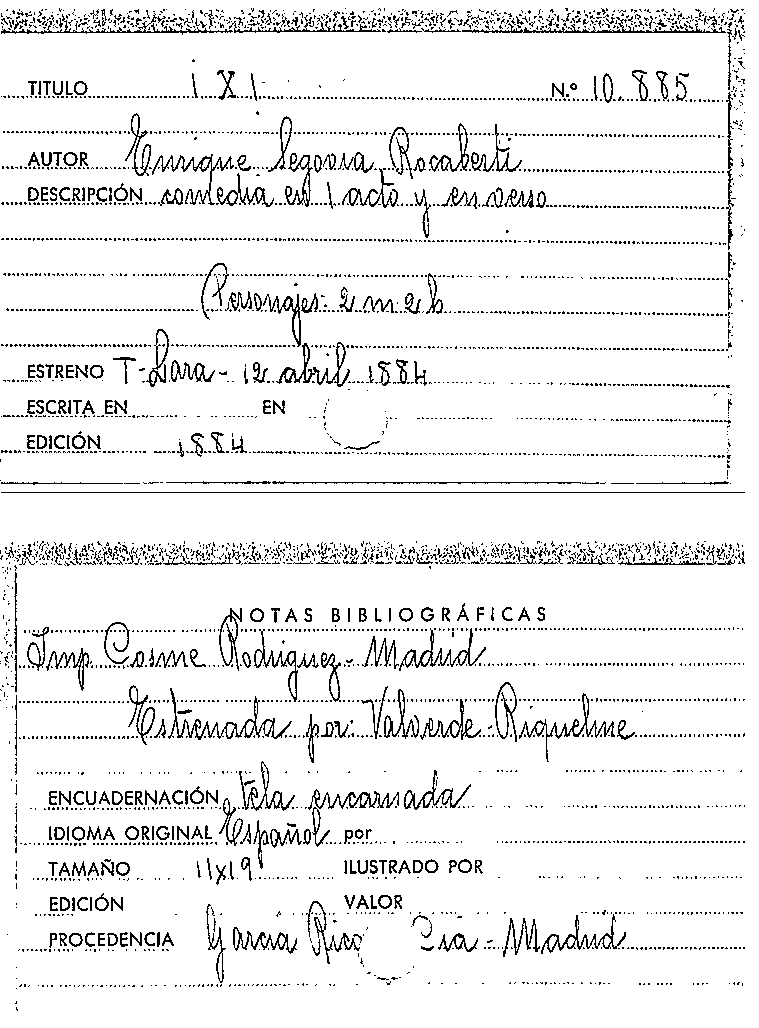 TITULO 1 X 1 N.º 10.885
AUTOR Enrique Segovia Rocaberti
DESCRIPCIÓN comedia en 1 acto y en verso
Personajes: 2 m 2 h
ESTRENO T-Lara - 12 abril 1884
ESCRITA EN EN
EDICIÓN 1884
NOTAS BIBLIOGRÁFICAS
Imp. Cosme Rodriguez - Madrid
Estrenada por: Valverde - Riquelme
ENCUADERNACIÓN tela encarnada
IDIOMA ORIGINAL Español por
TAMAÑO 11x19 ILUSTRADO POR
EDICIÓN VALOR
PROCEDENCIA García Rico Cia - Madrid